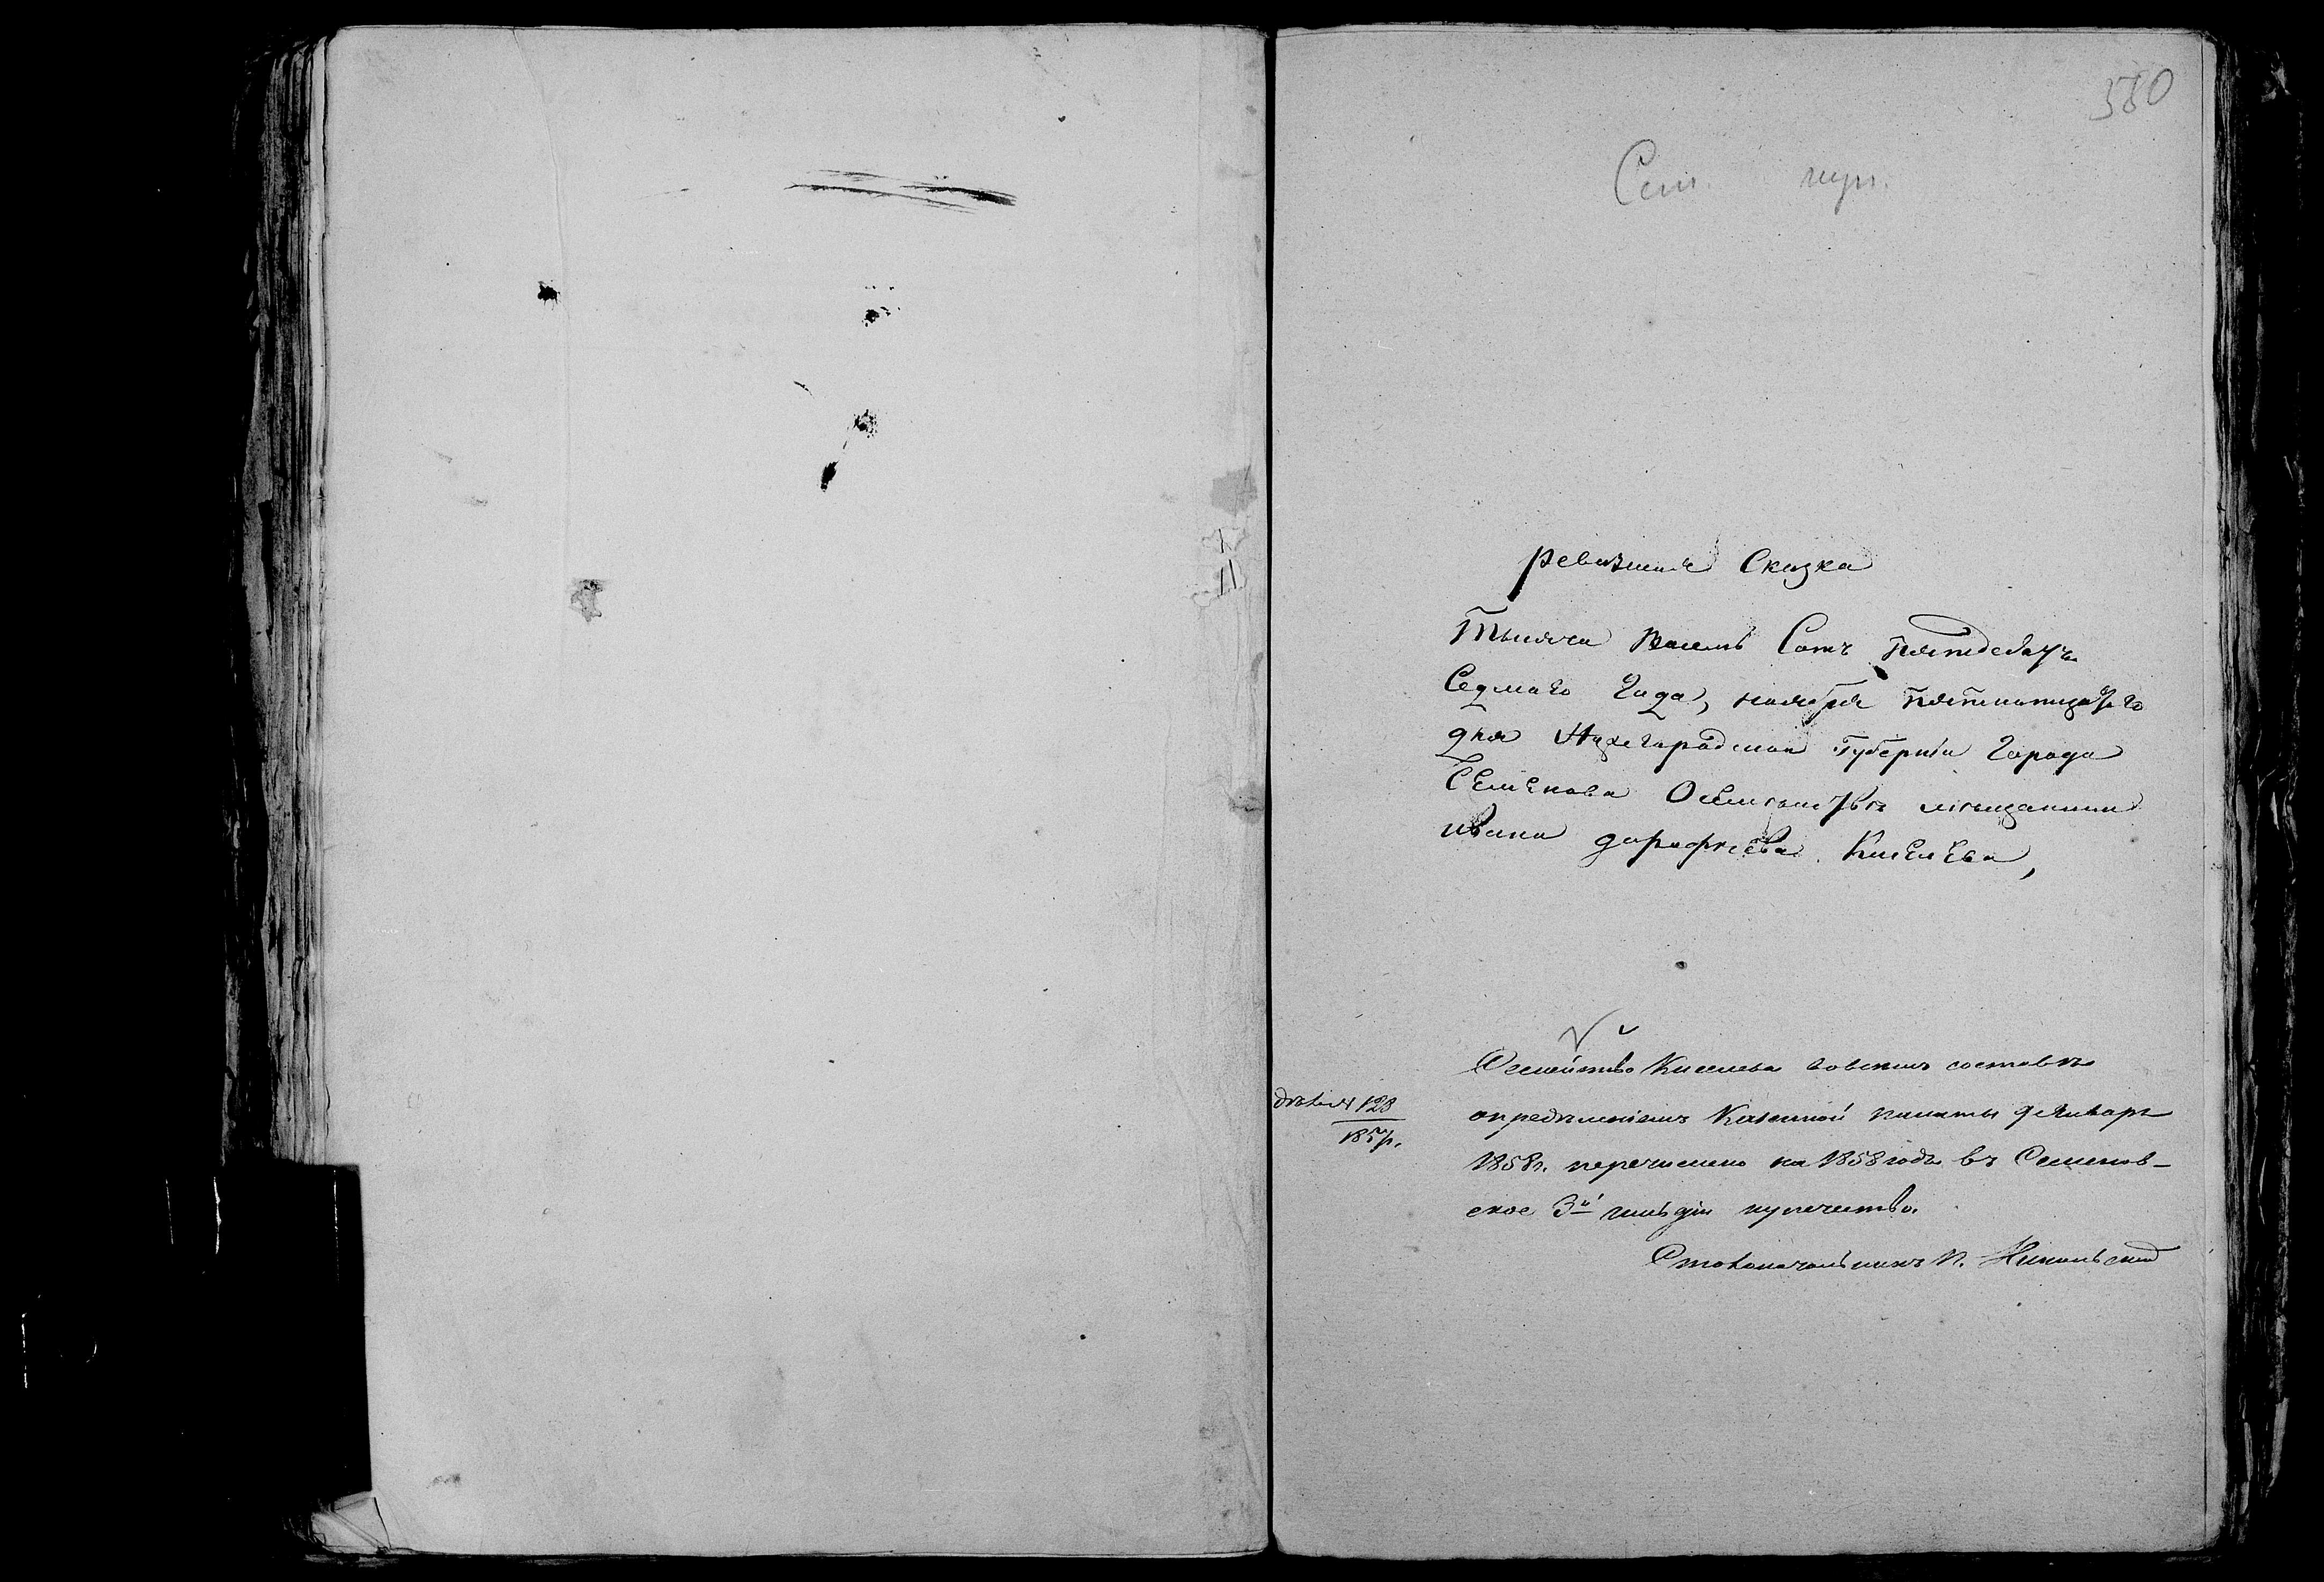 580
Сем. куп.
Ревизская Сказка
Тысяча Восемь Сотъ пятдесятъ
Седмаго Года, ноября пятнатцатаго
дня Нижегородской Губерніи Города
Семенова мещанина
ивана дорофеева Киселева,
Семейство Киселева вовсемъ составѣ
опредѣленіемъ Казенной палаты 9 Января
1858г. перечислено на 1858 годъ въ Семенов-
ское 3й гильдіи купечество.
дѣло № 128
1857г.
Столоначальникъ Н. Никольскій